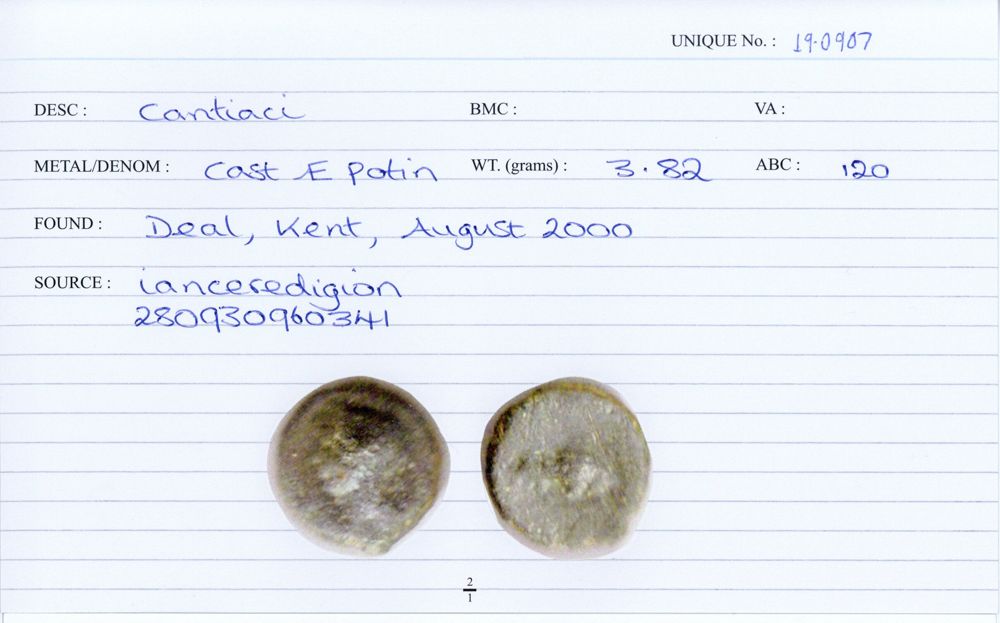 UNIQUE No. : 19.0907
DESC : Cantiaci BMC : VA :
METAL/DENOM : Cast Æ Potin WT. (grams) : 3.82 ABC : 120
FOUND : Deal, Kent, August 2000
SOURCE : ianceredigion
280930960341
2
1